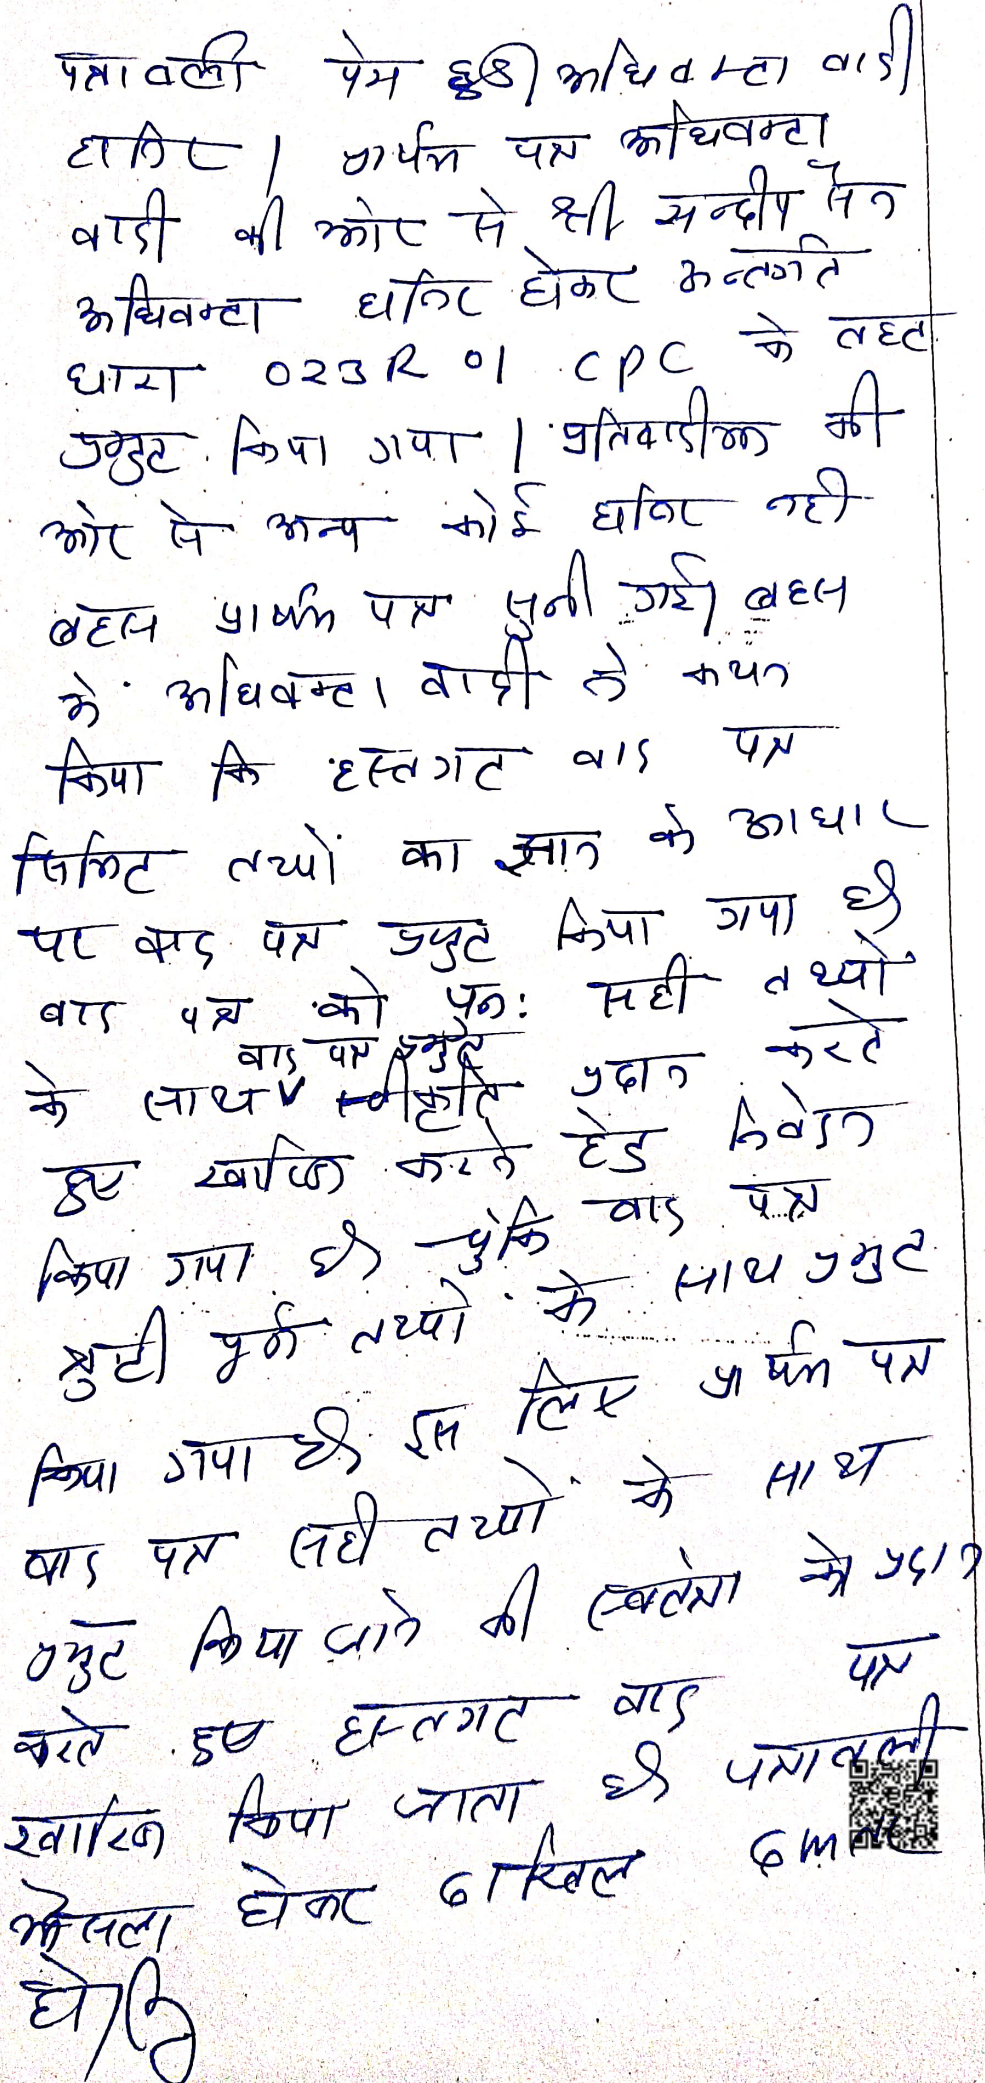 पत्रावली पेश हुई। अधिवक्ता वादी
हाजिर। प्रार्थना पत्र अधिवक्ता
वादी की ओर से श्री सन्दीप सैन
अधिवक्ता हाजिर होकर अन्तर्गत
धारा 023R 01 CPC के तहत
प्रस्तुत किया गया। प्रतिवादीगण की
ओर से अन्य कोई हाजिर नही
बहस प्रार्थना पत्र सुनी गई। बहस
मे अधिवक्ता वादी ने कथन
किया कि हस्तगत वाद पत्र
सिमित तथ्यों का ज्ञान के आधार
पर वाद पत्र प्रस्तुत किया गया है
वाद पत्र को पुन: सही तथ्यों
वाद पत्र प्रस्तुत
के साथ स्वीकृति प्रदान करते
हुए खारिज करने हेतु निवेदन
किया गया है चुंकि वाद पत्र
त्रुटी पूर्ण तथ्यो के साथ प्रस्तुत
किया गया है इस लिए प्रार्थना पत्र
वाद पत्र सही तथ्यों के साथ
प्रस्तुत किया जाने की स्वतंत्रता प्रदान
करते हुए हस्तगत वाद पत्र
खारिज किया जाता है पत्रावली
फैसला होकर दाखिल दफ्तर
हो।